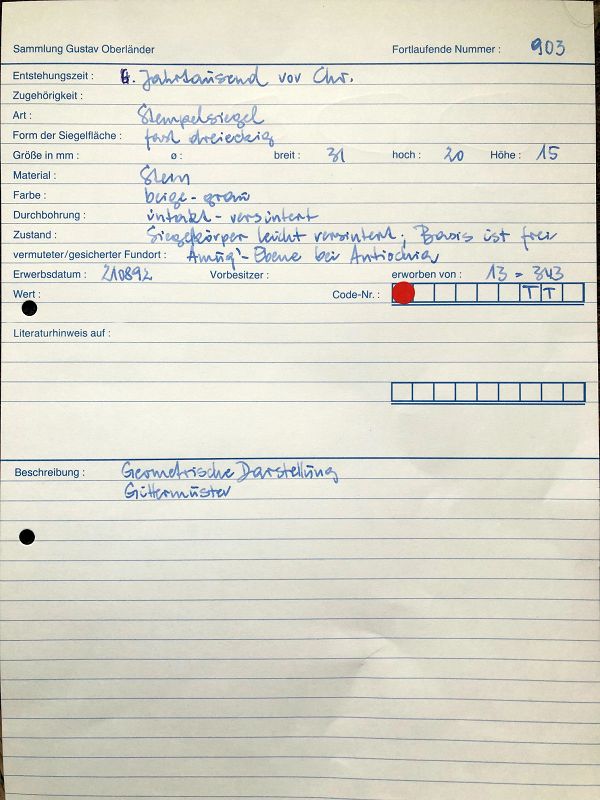 Sammlung Gustav Oberländer Fortlaufende Nummer : 903
Entstehungszeit : 4. Jahrtausend vor Chr.
Zugehörigkeit :
Art : Stempelsiegel
Form der Siegelfläche : fast dreieckig
Größe in mm : ø : breit : 31 hoch : 20 Höhe : 15
Material : Stein
Farbe : beige-grau
Durchbohrung : intakt - versintert
Zustand : Siegelkörper leicht versintert; Basis ist frei
vermuteter/gesicherter Fundort : Amuq'-Ebene bei Antiochia
Erwerbsdatum : 210892 Vorbesitzer : erworben von : 13 = 343
Wert : Code-Nr. : T T
Literaturhinweis auf :
Beschreibung : Geometrische Darstellung
Gittermuster